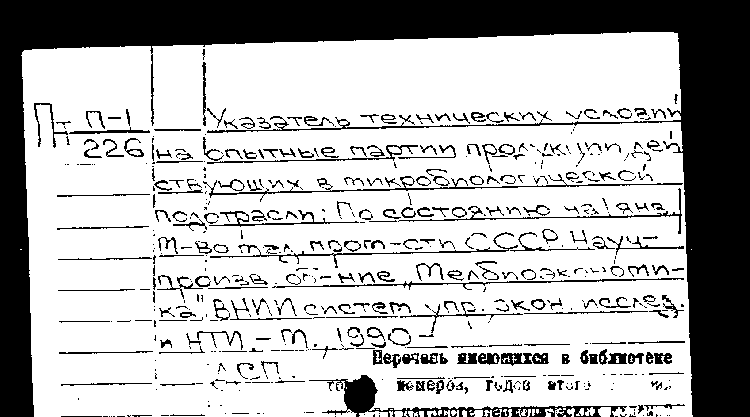 Пт П-1
226
Указатель технических условий
на опытные партии продукции, дей
ствующих в микробиологической
подотрасли: По состоянию на 1 янв.
М-во мед. пром-сти СССР. Науч.-
произв. об-ние „Медбиоэкономи-
ка" ВНИИ систем упр., экон. исслед.
и НТИ. – М., 1990 –
ДСП.
Перечень имеющихся в библиотеке
номеров, годов этого
каталоге периодических